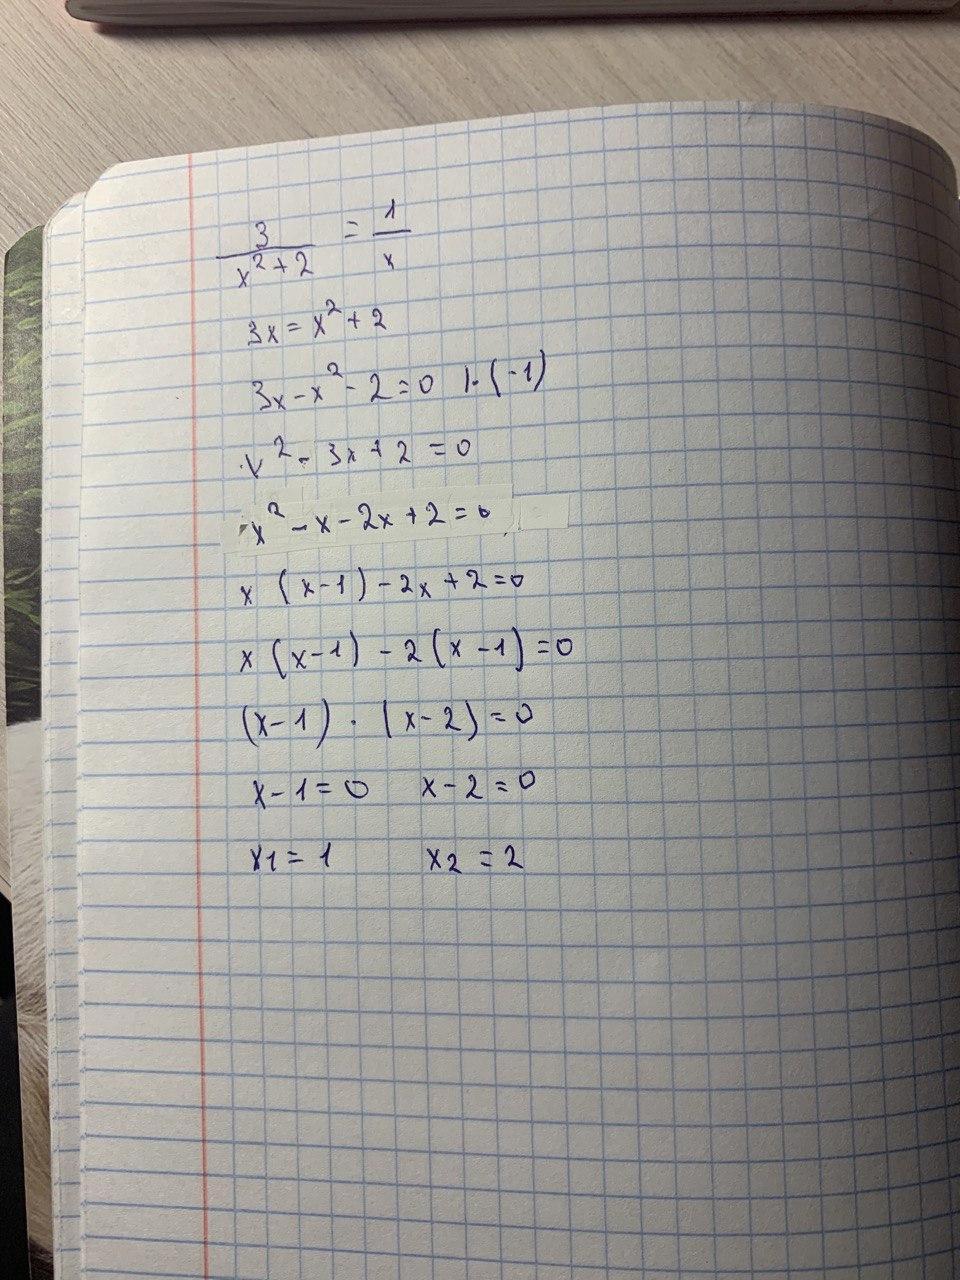 3/(x²+2) = 1/x
3x = x² + 2
3x - x² - 2 = 0 |·(-1)
x² - 3x + 2 = 0
x² - x - 2x + 2 = 0
x (x-1) - 2x + 2 = 0
x (x-1) - 2 (x-1) = 0
(x-1) · (x-2) = 0
x-1 = 0 x-2 = 0
x1 = 1 x2 = 2